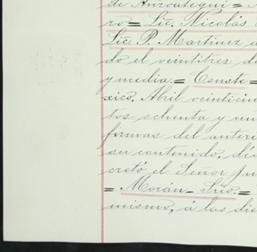 de Anzoategui=
ro= Lic. Nicolás
Lic. P. Martinez a
do el veintitres de
y media.= Conste=
xico, Abril veintiun
tos setenta y un
firmas del anteri
su contenido, dic
cretó el Señor Ju
= Morán= Srio.=
mismo, á las die